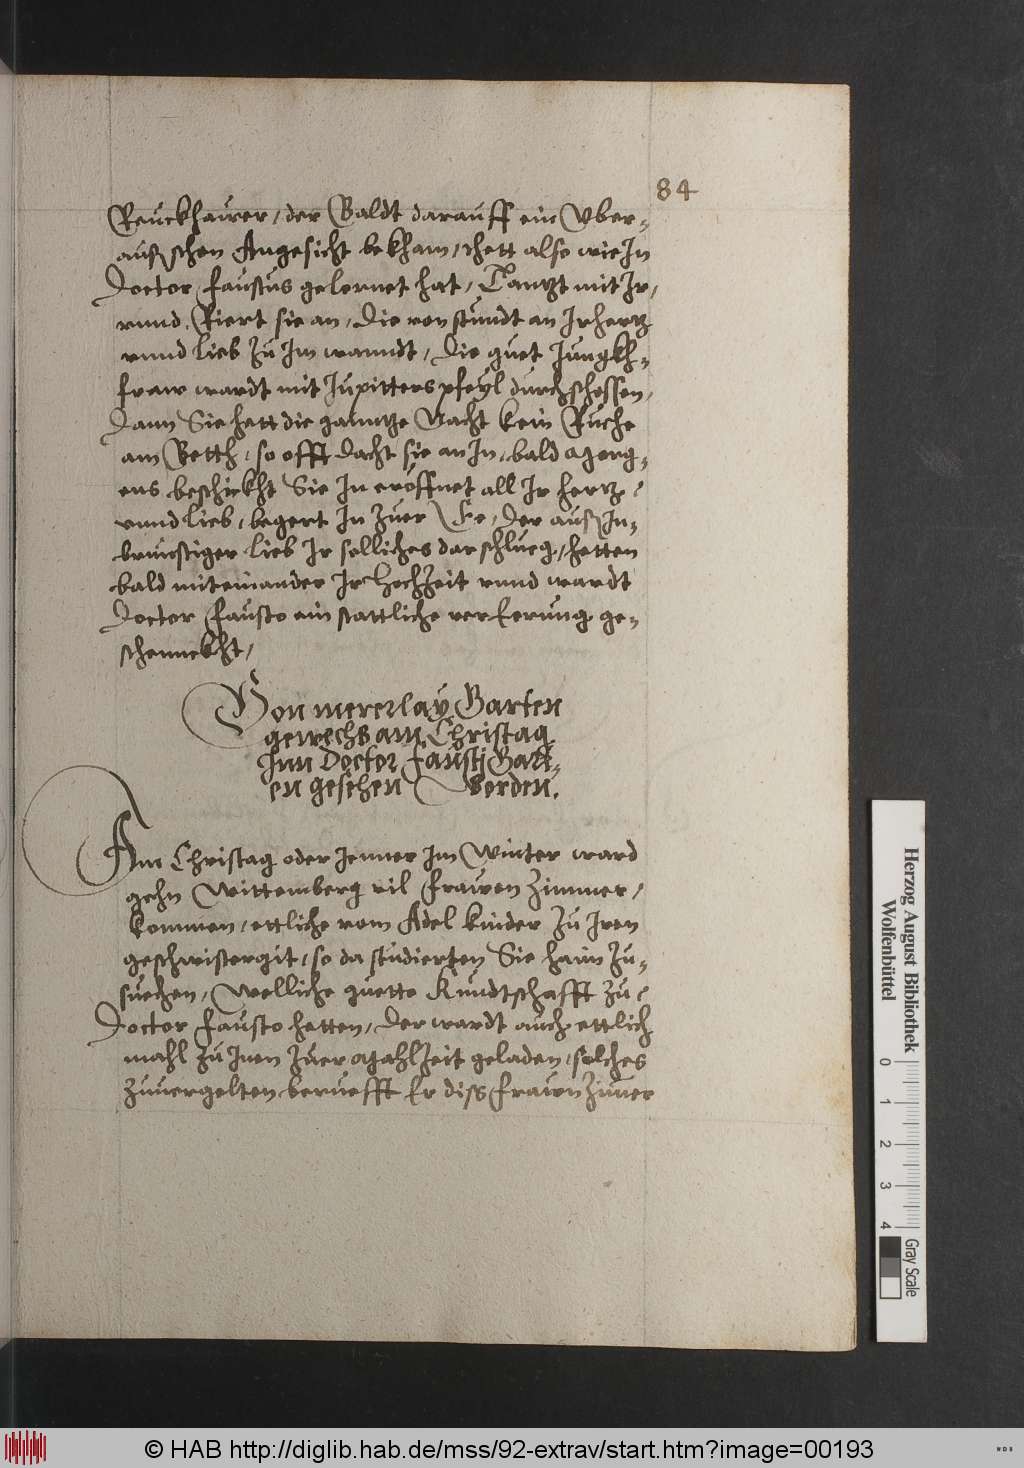 84
Reuckhaurer, der Baldt darauff ein Vber-
auß schen Angesicht bekham, thett also wie In
Doctor Faustus gelernet hat, Tantzt mit Ir,
vnnd Riert sie an, die von stundt an Ir hertz
vnnd lieb zu Im wanndt, die guet Jungkh-
fraw wardt mit Jupitters pfeyl durchschossen,
dann Sie hett die ganntze Nacht kein Ruehe
am Betth, so offt dacht sie an In, bald Morg-
ens beschickht Sie In eröffnet all Ir hertz
vnnd lieb, begert In zuer Ee, der auß In-
brunstiger lieb Ir solliches dar schlueg, hetten
bald miteinander Ir Hochzeit vnnd wardt
Doctor Fausto ein stattliche vererung ge-
schennckht,
Von mererlay Garten
gewechs am Christag
Inn Doctor Faustj Gart-
en gesehen Worden.
Am Christag oder Jenner Im Winter ward
gehn Wittemberg vil Frawen Zimmer,
kommen, ettliche vom Adel kinder zu Iren
geschwistergit, so da studierten Sie haim zu-
suechen, Welliche guette Kundtschafft zu
Doctor Fausto hetten, der wardt auch ettlich
mahl zu Inen zuer Mahlzeit geladen, solches
zuuergelten beruefft Er diss Frawn Zimer
Herzog August Bibliothek
Wolfenbüttel
0 1 2 3 4
Gray Scale
© HAB http://diglib.hab.de/mss/92-extrav/start.htm?image=00193